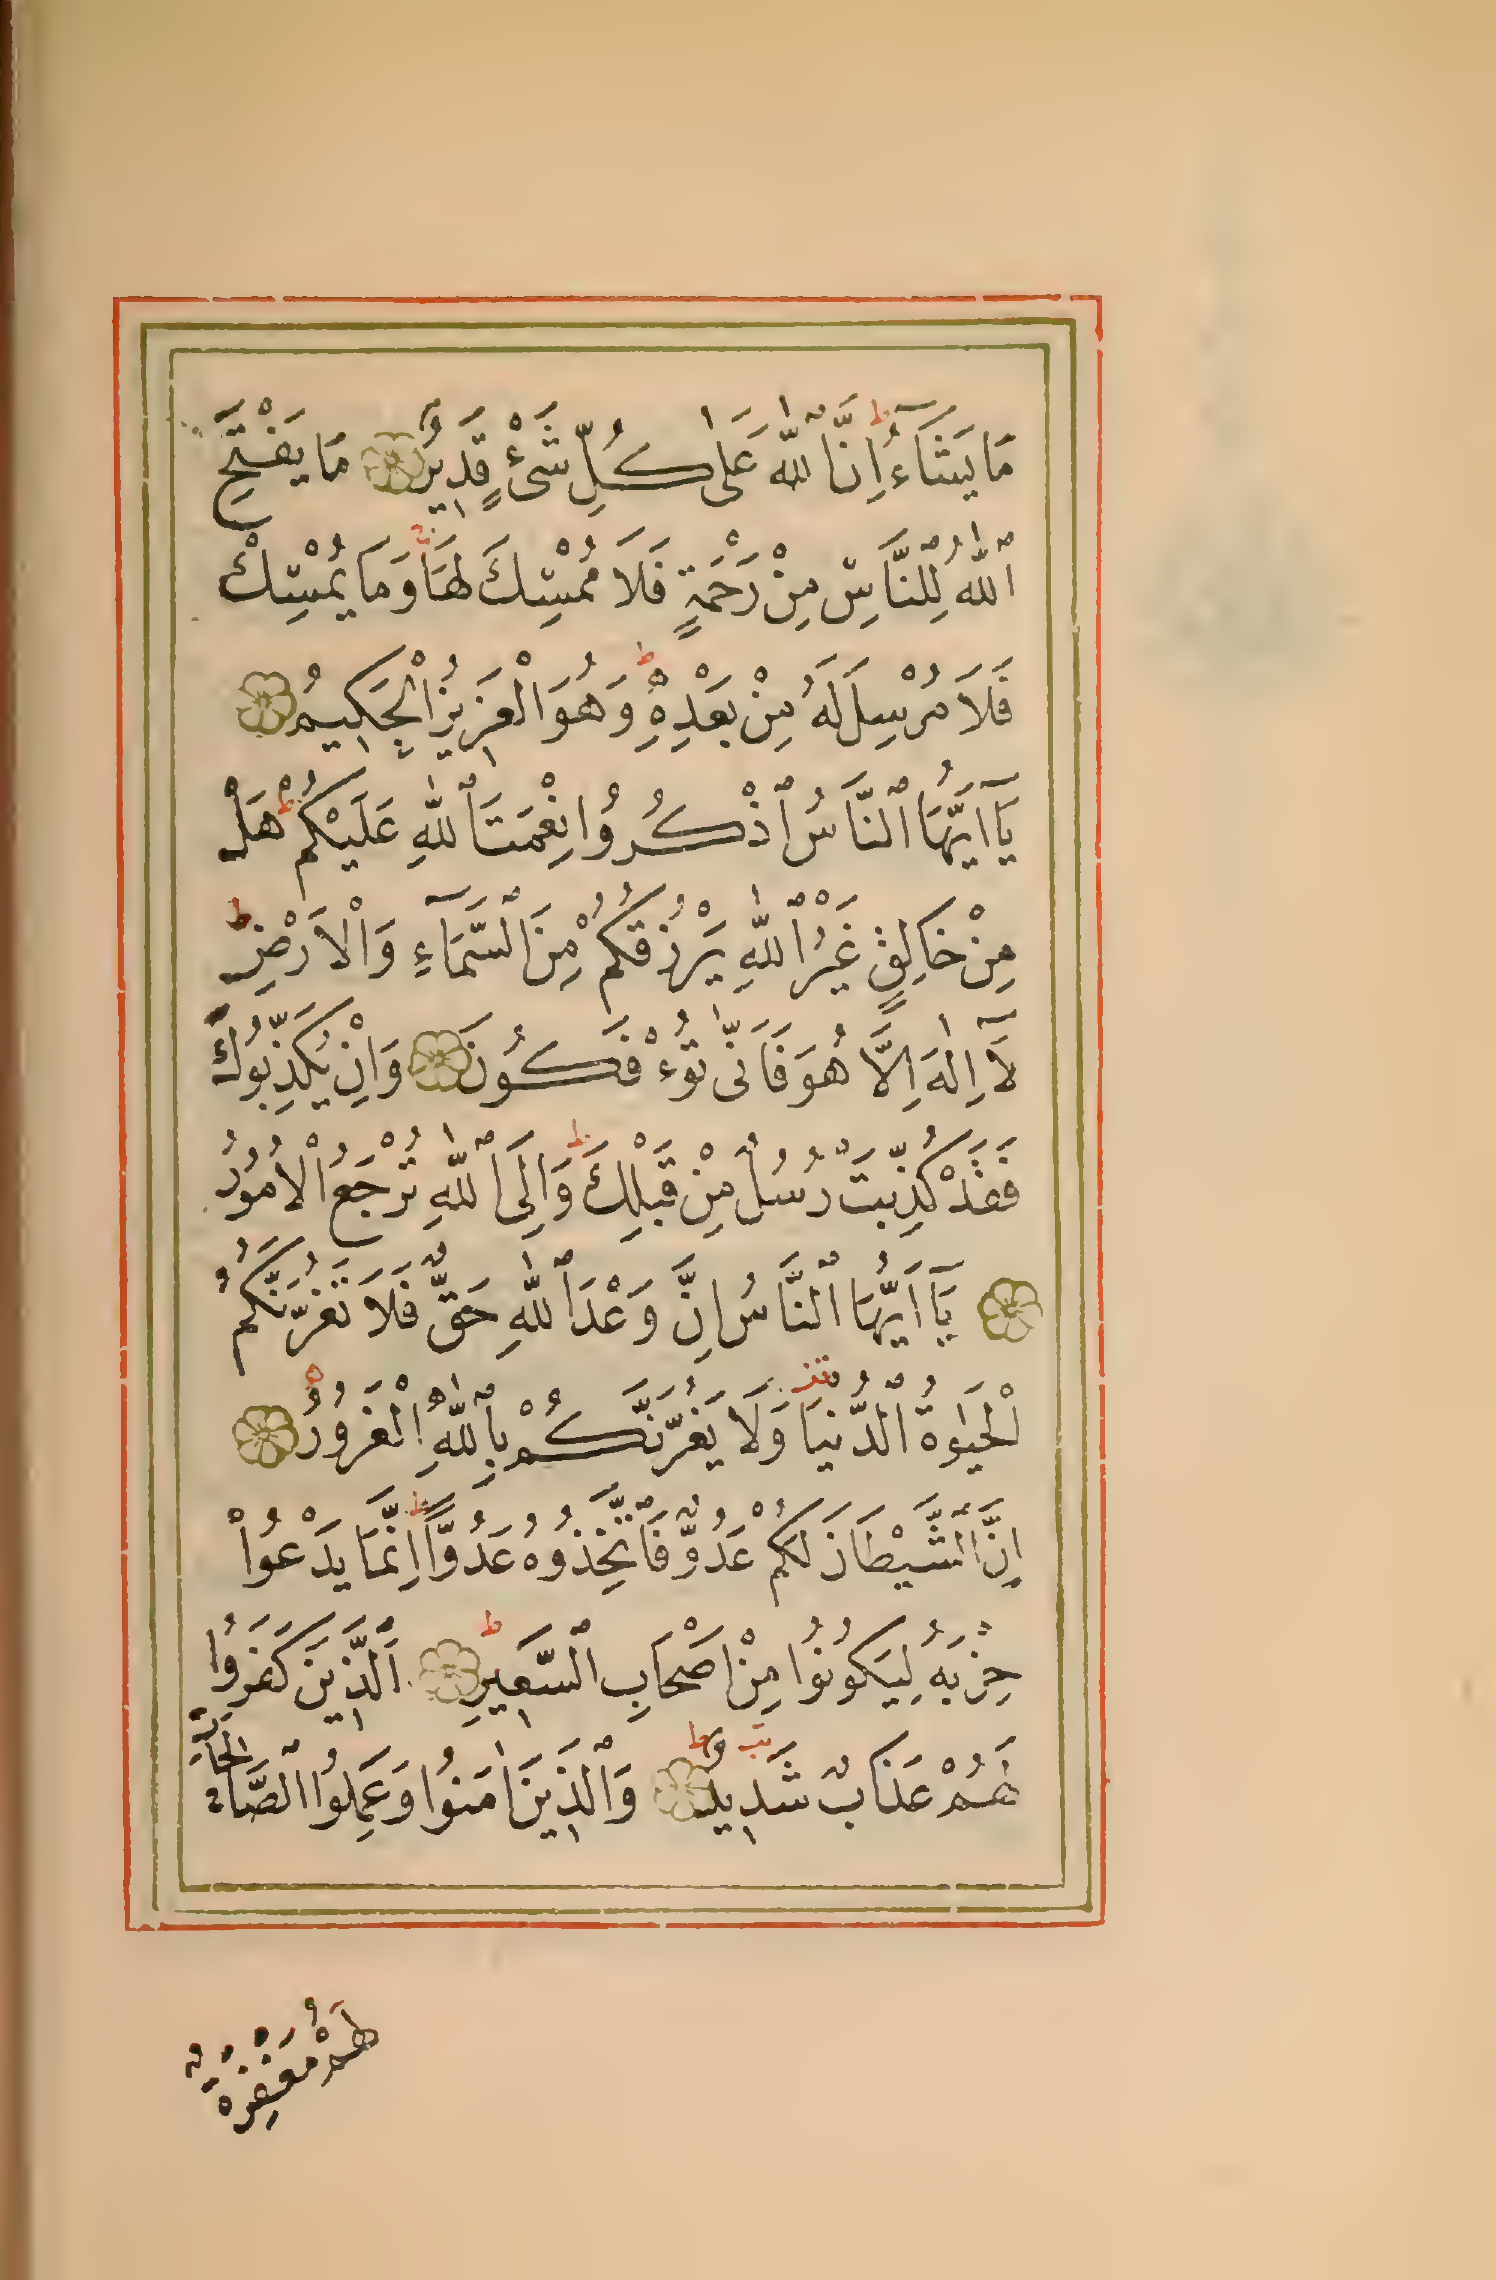 مَا يَشَآءُ ط اِنَّ ٱللّٰهَ عَلٰى كُلِّ شَىْءٍ قَدِيرٌ مَا يَفْتَحِ
ٱللّٰهُ لِلنَّاسِ مِنْ رَحْمَةٍ فَلَا مُمْسِكَ لَهَا وَمَا يُمْسِكْ
فَلَا مُرْسِلَ لَهُ مِنْ بَعْدِهِ ط وَهُوَ الْعَزِيزُ الْحَكِيمُ
يَآ اَيُّهَا ٱلنَّاسُ ٱذْكُرُوا نِعْمَتَ ٱللّٰهِ عَلَيْكُمْ ط هَلْ
مِنْ خَالِقٍ غَيْرُ ٱللّٰهِ يَرْزُقُكُمْ مِنَ ٱلسَّمَآءِ وَالْاَرْضِ ط
لَآ اِلٰهَ اِلَّا هُوَ فَاَنّٰى تُؤْفَكُونَ وَاِنْ يُكَذِّبُوكَ
فَقَدْ كُذِّبَتْ رُسُلٌ مِنْ قَبْلِكَ ط وَاِلَى ٱللّٰهِ تُرْجَعُ الْاُمُورُ
يَآ اَيُّهَا ٱلنَّاسُ اِنَّ وَعْدَ ٱللّٰهِ حَقٌّ فَلَا تَغُرَّنَّكُمُ
الْحَيٰوةُ ٱلدُّنْيَا وَلَا يَغُرَّنَّكُمْ بِٱللّٰهِ الْغَرُورُ
اِنَّ ٱلشَّيْطَانَ لَكُمْ عَدُوٌّ فَاتَّخِذُوهُ عَدُوًّا ط اِنَّمَا يَدْعُوْا
حِزْبَهُ لِيَكُونُوا مِنْ اَصْحَابِ ٱلسَّعِيرِ ط اَلَّذِينَ كَفَرُوا
لَهُمْ عَذَابٌ شَدِيدٌ ط وَالَّذِينَ اٰمَنُوا وَعَمِلُوا ٱلصَّالِحَاتِ
لَهُمْ مَغْفِرَةٌ